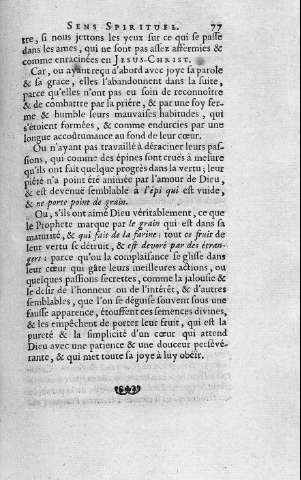 SENS SPIRITUEL. 77
tre, si nous jettons les yeux sur ce qui se passe
dans les ames, qui ne sont pas assez affermies &
comme enracinées en JESUS-CHRIST.
Car, ou ayant reçu d'abord avec joye sa parole
& sa grace, elles l'abandonnent dans la suite,
parce qu'elles n'ont pas eu soin de reconnoître
& de combattre par la priére, & par une foy fer-
me & humble leurs mauvaises habitudes, qui
s'étoient formées, & comme endurcies par une
longue accoûtumance au fond de leur cœur.
Ou n'ayant pas travaillé à déraciner leurs pas-
sions, qui comme des épines sont crues à mesure
qu'ils ont fait quelque progrès dans la vertu; leur
piété n'a point été animée par l'amour de Dieu,
& est devenuë semblable à l'épi qui est vuide,
& ne porte point de grain.
Ou, s'ils ont aimé Dieu véritablement, ce que
le Prophete marque par le grain qui est dans sa
maturité, & qui fait de la farine: tout ce fruit de
leur vertu se détruit, & est devoré par des étran-
gers: parce qu'ou la complaisance se glisse dans
leur cœur qui gâte leurs meilleures actions, ou
quelques passions secrettes, comme la jalousie &
le desir de l'honneur ou de l'intérêt, & d'autres
semblables, que l'on se déguise souvent sous une
fausse apparence, étouffent ces semences divines,
& les empêchent de porter leur fruit, qui est la
pureté & la simplicité d'un cœur qui attend
Dieu avec une patience & une douceur persévé-
rante, & qui met toute sa joye à luy obéir.